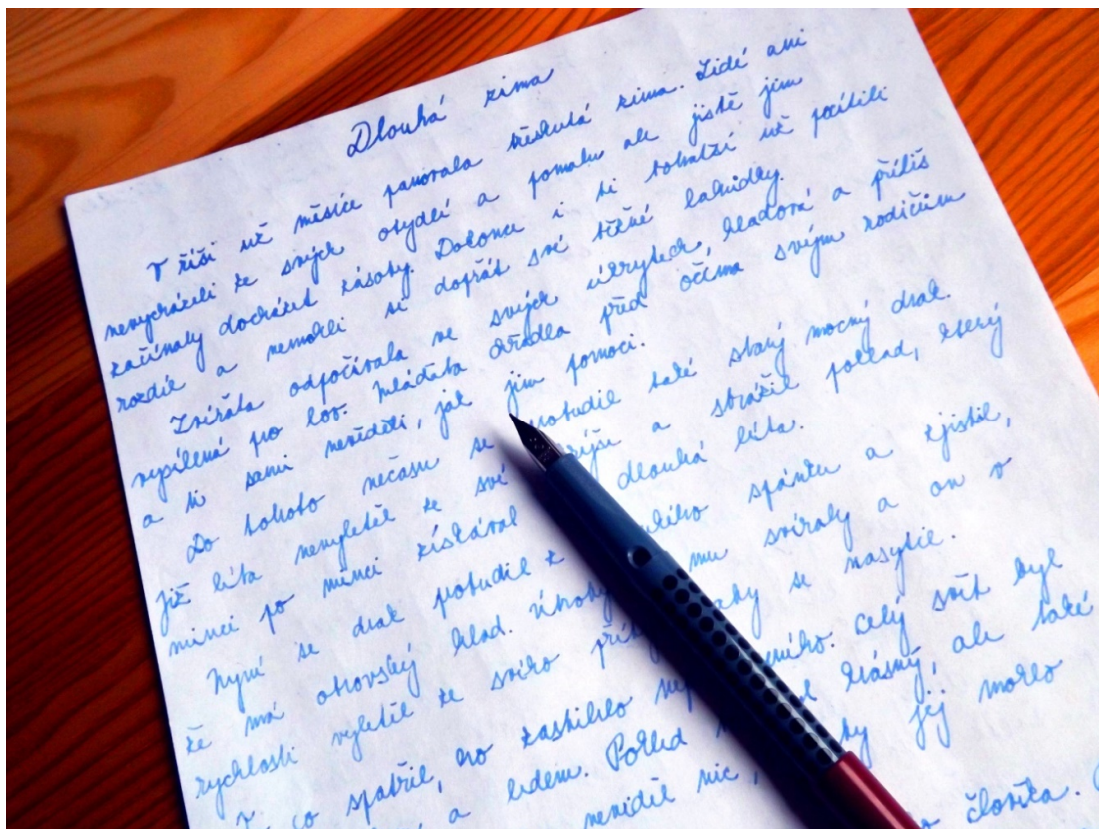 Dlouhá zima
V říši už měsíce panovala třeskutá zima. Lidé ani
nevycházeli ze svých obydlí a pomalu ale jistě jim
začínaly docházet zásoby. Dokonce i ti bohatší už pocítili
rozdíl a nemohli si dopřát své běžné lahůdky.
Zvířata odpočívala ve svých úkrytech, hladová a příliš
vysílená pro lov. Mláďata chřadla před očima svým rodičům
a ti sami nevěděli, jak jim pomoci.
Do tohoto nečasu se probudil také starý mocný drak.
Již léta nevyletěl ze své skrýše a strážil poklad, který
minci po minci získával dlouhá léta.
Nyní se drak probudil z spánku a zjistil,
že má obrovský hlad. Útroby mu svíraly a on v
rychlosti vyletěl ze svého aby se nasytil.
co spatřil, ho zastihlo Celý svět byl
a ledem. Pohled krásný, ale také
neviděl nic, by jej mohlo
člověka.